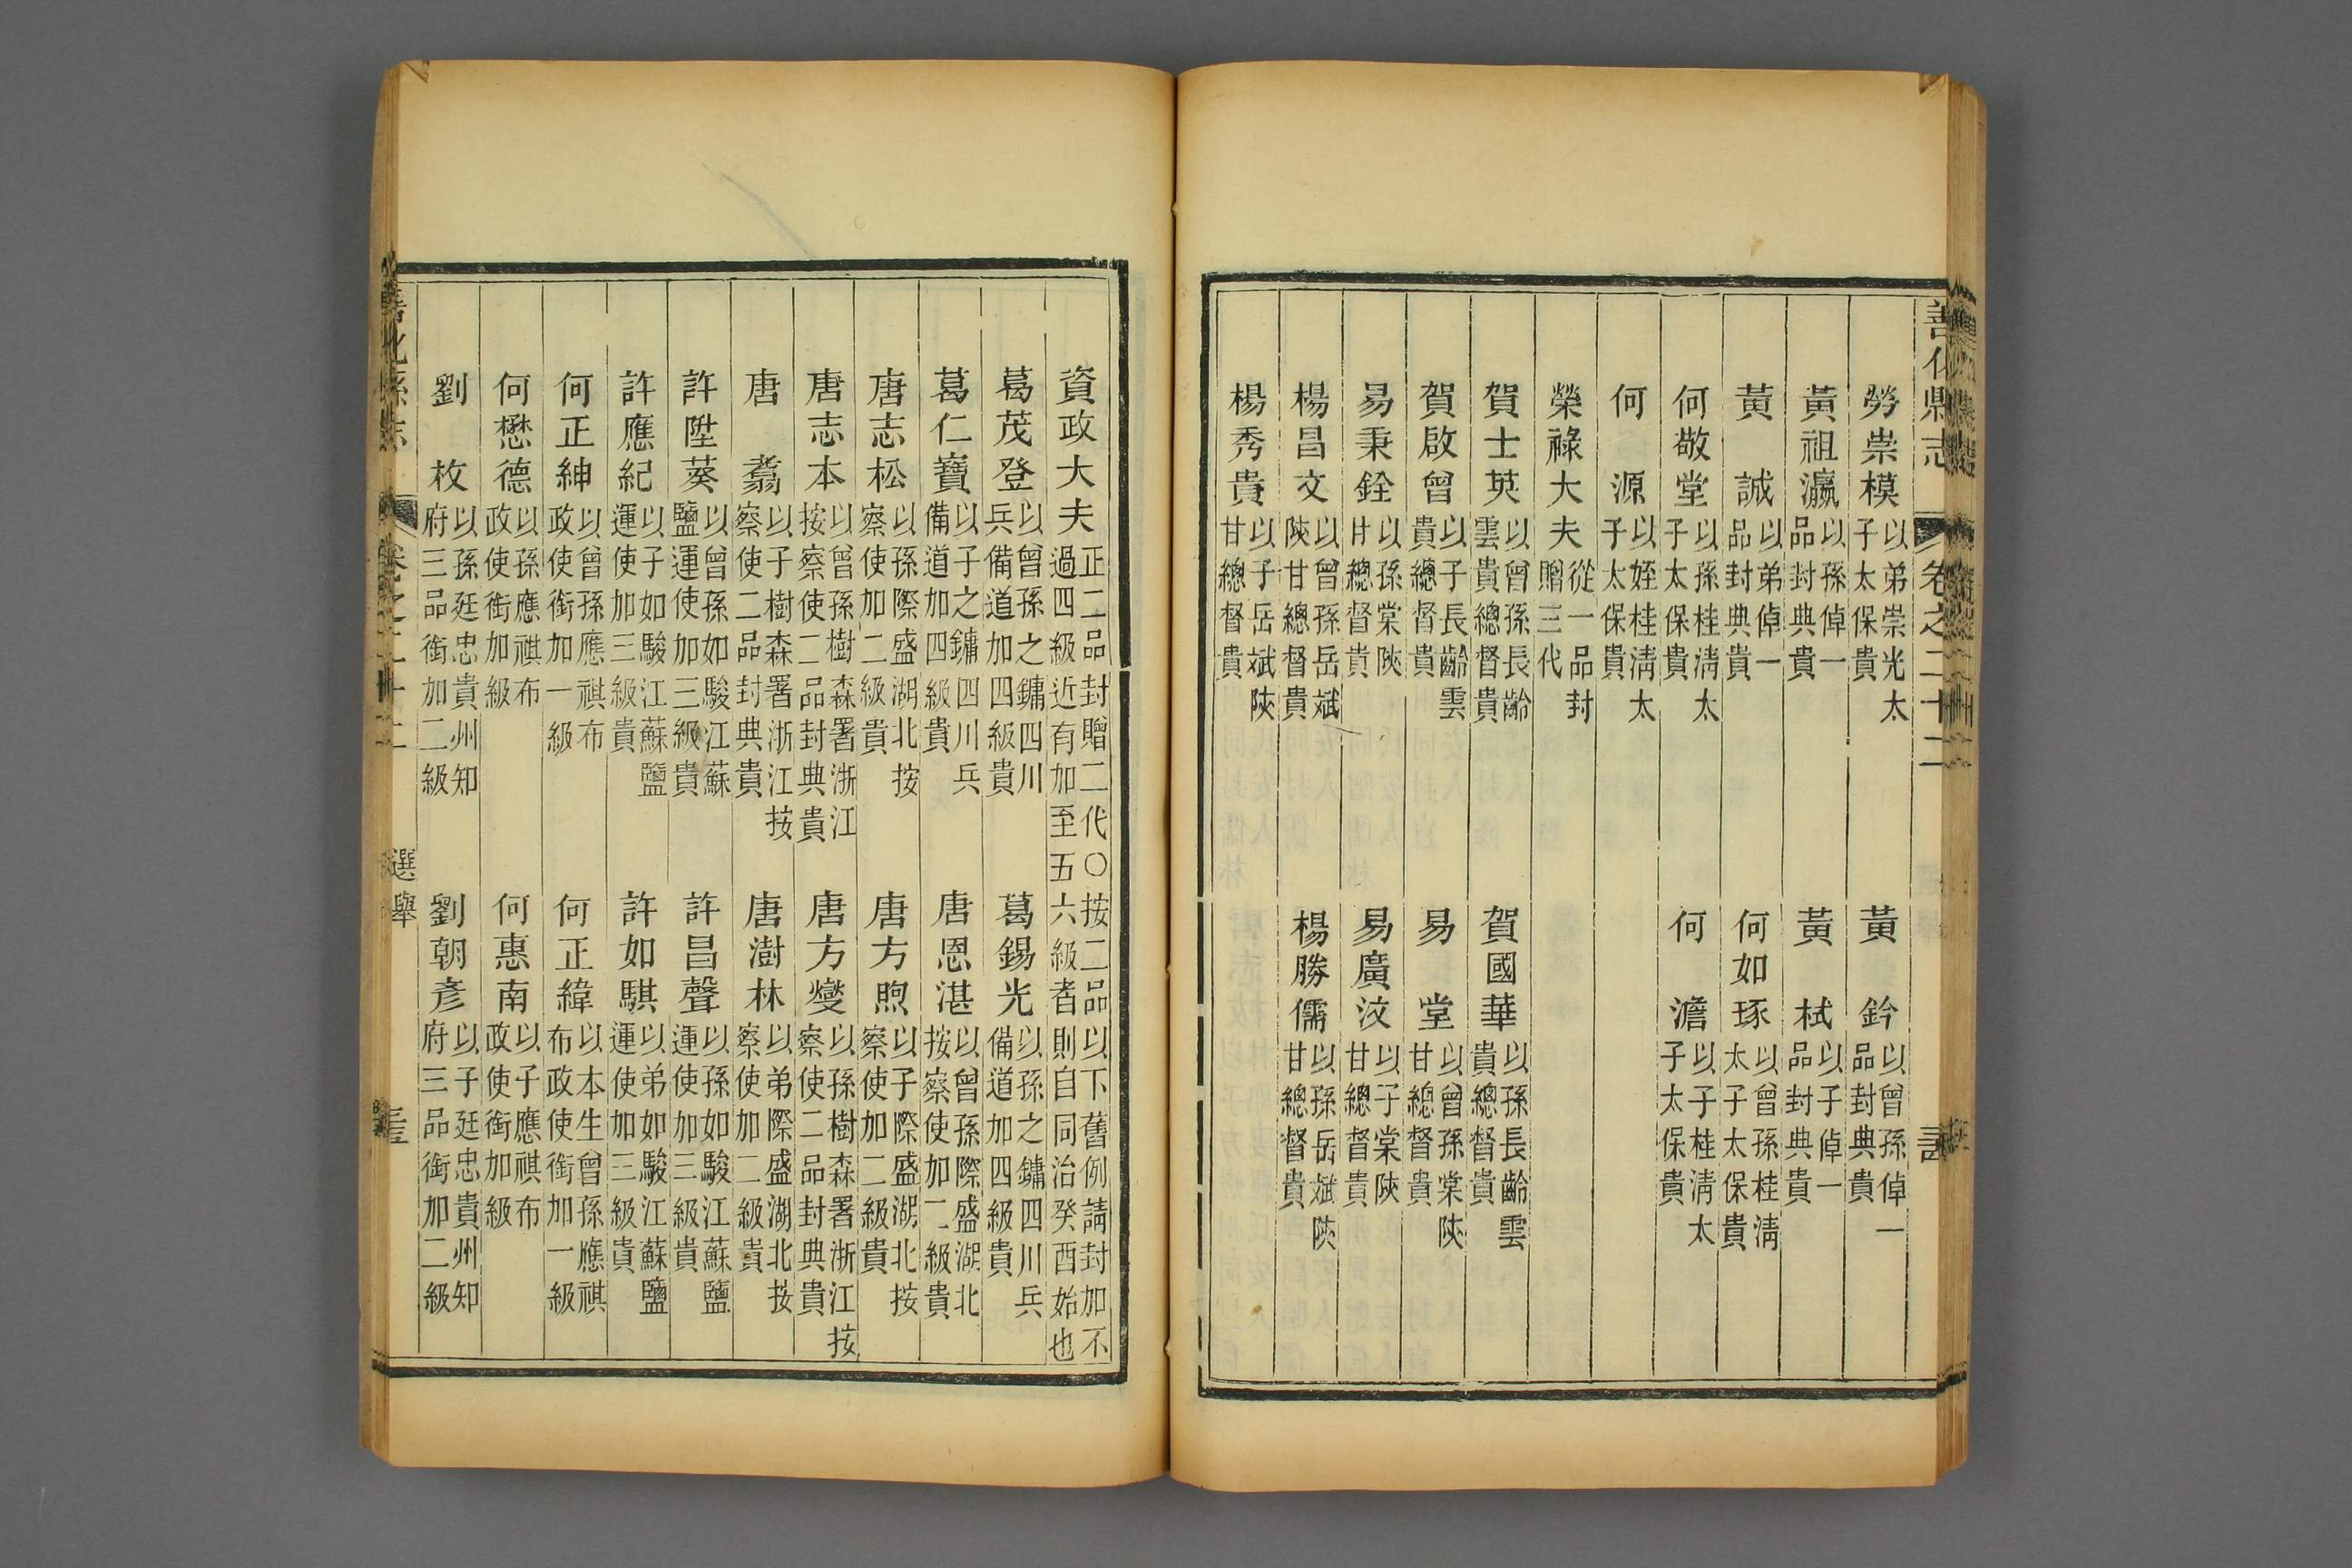 善化縣志 卷之二十二
勞崇模以弟崇光太子太保貴 黃鈐以曾孫倬一品封典貴
黃祖瀛以孫倬一品封典貴 黃栻以子倬一品封典貴
黃誠以弟倬一品封典貴 何如琢以曾孫桂淸太子太保貴
何敬堂以孫桂淸太子太保貴 何澹以子桂淸太子太保貴
何源以姪桂淸太子太保貴
榮祿大夫從一品封贈三代
賀士英以曾孫長齡雲貴總督貴 賀國華以孫長齡雲貴總督貴
賀啟曾以子長齡雲貴總督貴 易堂以曾孫棠陝甘總督貴
易秉銓以孫棠陝甘總督貴 易廣汶以子棠陝甘總督貴
楊昌文以曾孫岳斌陝甘總督貴 楊勝儒以孫岳斌陝甘總督貴
楊秀貴以子岳斌陝甘總督貴
資政大夫正二品封贈二代○按二品以下舊例請封加不過四級近有加至五六級者則自同治癸酉始也
葛茂登以曾孫之鏞四川兵備道加四級貴 葛錫光以孫之鏞四川兵備道加四級貴
葛仁寶以子之鏞四川兵備道加四級貴 唐恩湛以曾孫際盛湖北按察使加二級貴
唐志松以孫際盛湖北按察使加二級貴 唐方煦以子際盛湖北按察使加二級貴
唐志本以曾孫樹森署浙江按察使二品封典貴 唐方燮以孫樹森署浙江按察使二品封典貴
唐翥以子樹森署浙江按察使二品封典貴 唐澍林以弟際盛湖北按察使加二級貴
許陞葵以曾孫如駿江蘇鹽運使加三級貴 許昌聲以孫如駿江蘇鹽運使加三級貴
許應紀以子如駿江蘇鹽運使加三級貴 許如騏以弟如駿江蘇鹽運使加三級貴
何正紳以曾孫應祺布政使銜加一級 何正緯以本生曾孫應祺布政使銜加一級
何懋德以孫應祺布政使銜加級 何惠南以子應祺布政使銜加級
劉枚以孫廷忠貴州知府三品銜加二級 劉朝彥以子廷忠貴州知府三品銜加二級
善化縣志 卷之二十二 選舉